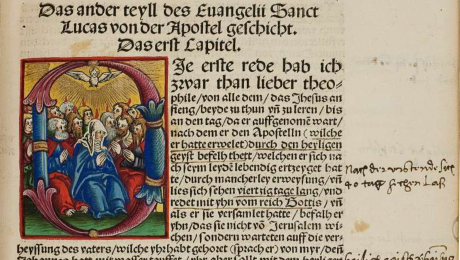 Das ander teyll des Euangelii Sanct
Lucas von der Apostel geschicht.
Das erst Capitel.
Je erste rede hab ich
zwar than lieber theo⸗
phile/von alle dem/das Jhesus an
fieng/beyde zu thun vñ zu leren/bis
an den tag/da er auffgenomẽ wart/
nach dem er den Apostelln (wilche
er hatte erwelet) durch den heyligen
geyst befelh thett/welchen er sich na
ch seym leydẽ lebendig ertzeyget hat
te/durch mancherley erweysung/vñ
lies sich sehen viertzig tage lang/vnd
redet mit yhn vom reich Gottis/vñ
als er sie versamlet hatte/befalh er
yhn/das sie nicht võ Jerusalem wi⸗
chen/sondern warteten auff die ver⸗
heyssung des vaters/wilche yhr habt gehoret (sprach er) von myr/deñ